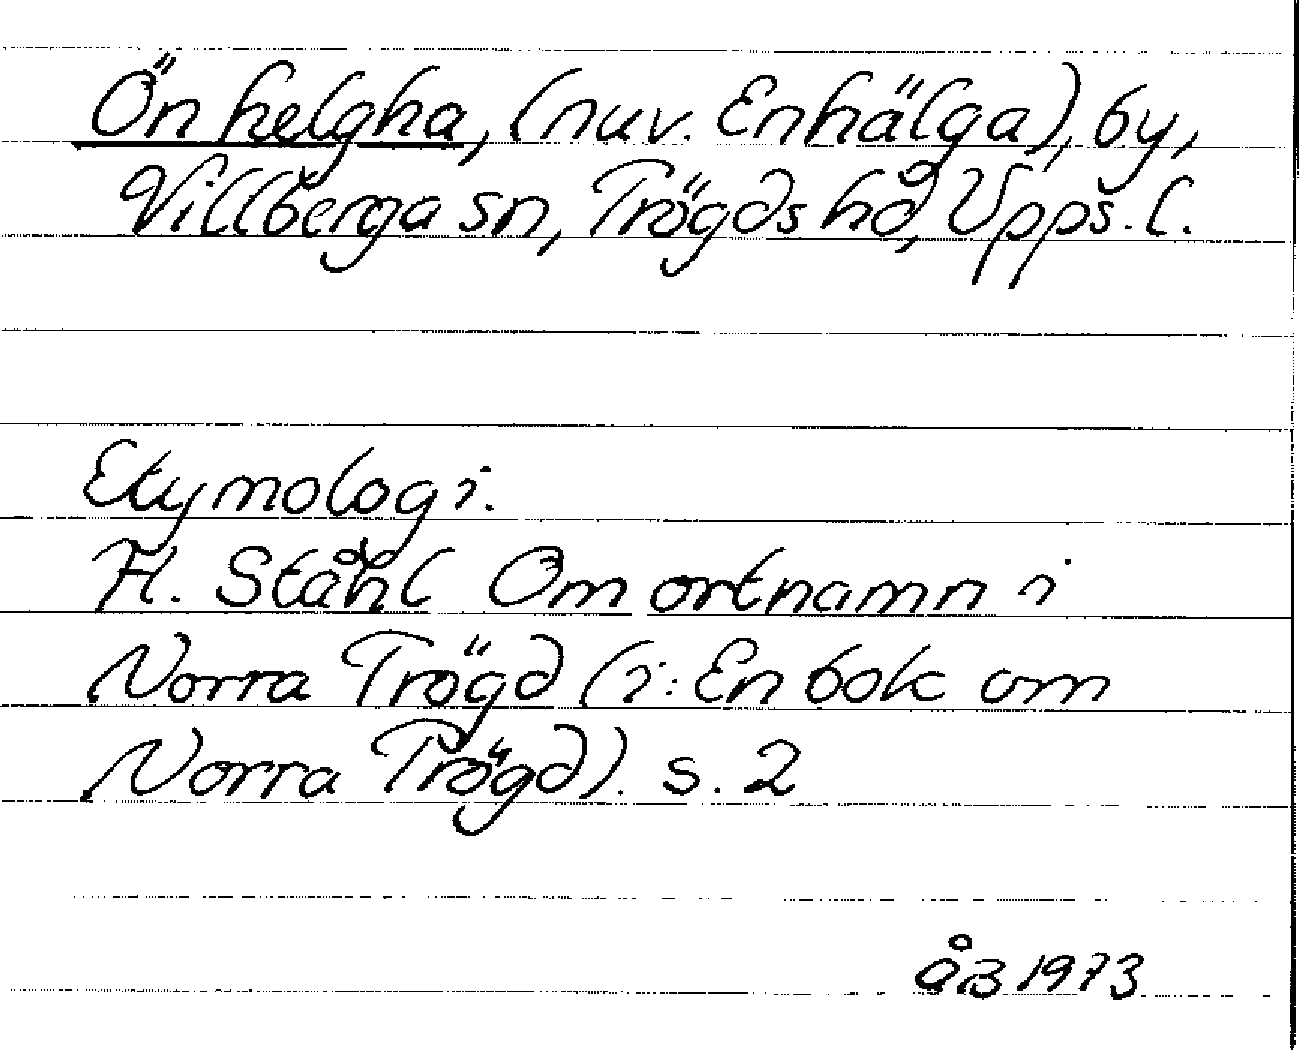 Ön helgha, (nuv. Enhälga), by,
Villberga sn, Trögds hd, Upps. l.
Etymologi.
H. Ståhl Om ortnamn i
Norra Trögd (i: En bok om
Norra Trögd). s. 2
ÅB 1973